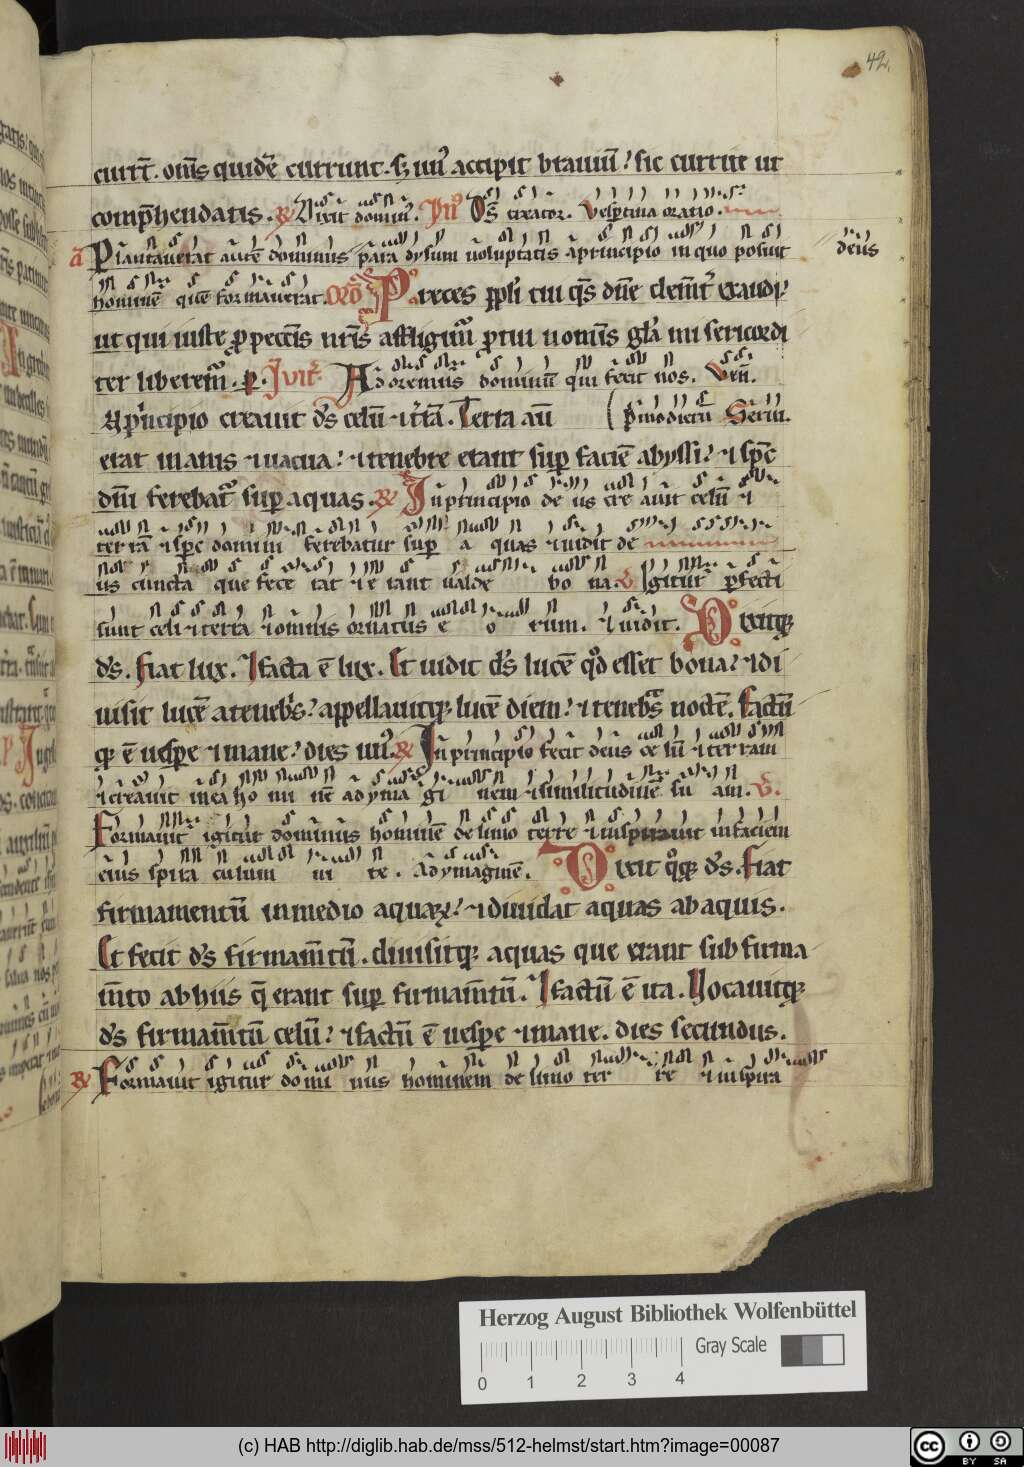 42.
currt̄. om̄s quidē currunt. s; un' accipit brauiū? sic currite ut
comp̄hendatis. R Dixit domin'. Yn̄ D̄s creator. Vesp̄tina oratio.
a Plantauerat autē dominus para dysum uoluptatis a principio in quo posuit deus
hominē quē formauerat. Orō Preces ppl̄i tui qs dn̄e clem̄t' exaudi
ut qui iuste p peccc̄is nr̄is affligimur p tui nomīs gl̄a mi sericordi
ter liberem'. p. Jvit' Adoremus dominū qui fecit nos. Ven̄.
A principio creauit d̄s celū ⁊ t̄rā. Terra aū (p̄mo dierū Seruī.
erat inanis ⁊ uacua? ⁊ tenebre erant sup faciē abyssi? ⁊ sp̄c
dn̄i ferebat' sup aquas. R Jn principio de us cre auit celū ⁊
ter rā ⁊ sp̄c domini ferebatur sup a quas ⁊ uidit de
us cuncta que fece rat ⁊ e rant ualde bo na. V Jgitur pfecti
sunt celi ⁊ terra ⁊ omnis ornatus e o rum. ⁊ uidit. Dixitq;
d̄s. Fiat lux. ⁊ facta ē lux. Et uidit d̄s lucē qd̄ esset bona? ⁊ di
uisit lucē a tenebris? appellauitq; lucē diem? ⁊ tenebras noctē. Factū
q; ē uesp̄e ⁊ mane? dies un'. R Jn principio fecit deus ce lū ⁊ ter ram
⁊ creauit in ea ho mi nē ad yma gi nem ⁊ similitudinē su am. V.
Formauit igitur dominus hominē de limo terre ⁊ inspirauit in faciem
eius spira culum ui te. Ad ymaginē. Dixit qq; d̄s. Fiat
firmamentū in medio aquaꝝ? ⁊ diuidat aquas ab aquis.
Et fecit d̄s firmam̄tū. diuisitq; aquas que erant sub firma
m̄to ab hiis q̄ erant sup firmam̄tū. ⁊ factū ē ita. Uocauitq;
d̄s firmam̄tū celū? ⁊ factū ē uesp̄e ⁊ mane. dies secundus.
R Formauit igitur domi nus hominem de limo ter re ⁊ inspira
Herzog August Bibliothek Wolfenbüttel
Gray Scale
0 1 2 3 4
(c) HAB http://diglib.hab.de/mss/512-helmst/start.htm?image=00087
cc BY SA